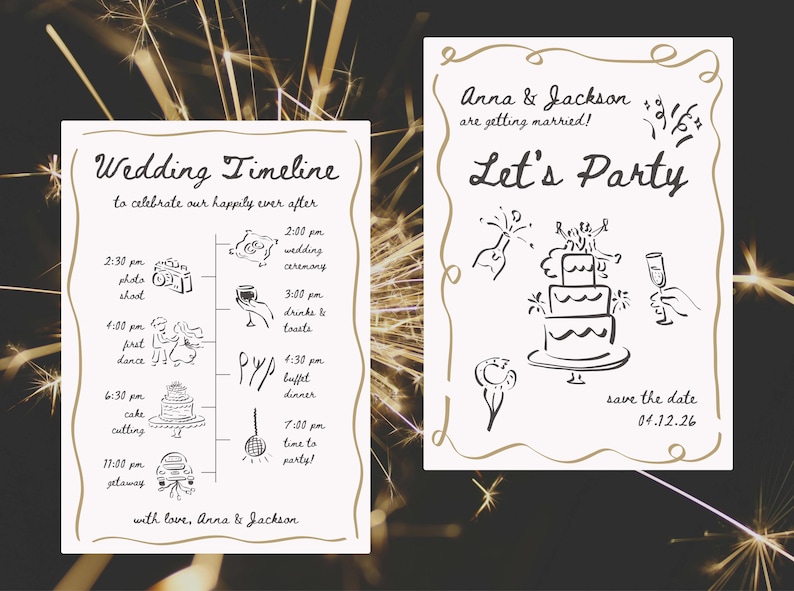 Wedding Timeline
to celebrate our happily ever after
2:00 pm
wedding
ceremony
2:30 pm
photo
shoot
3:00 pm
drinks &
toasts
4:00 pm
first
dance
4:30 pm
buffet
dinner
6:30 pm
cake
cutting
7:00 pm
time to
party!
11:00 pm
getaway
with love, Anna & Jackson
Anna & Jackson
are getting married!
Let's Party
save the date
04.12.26